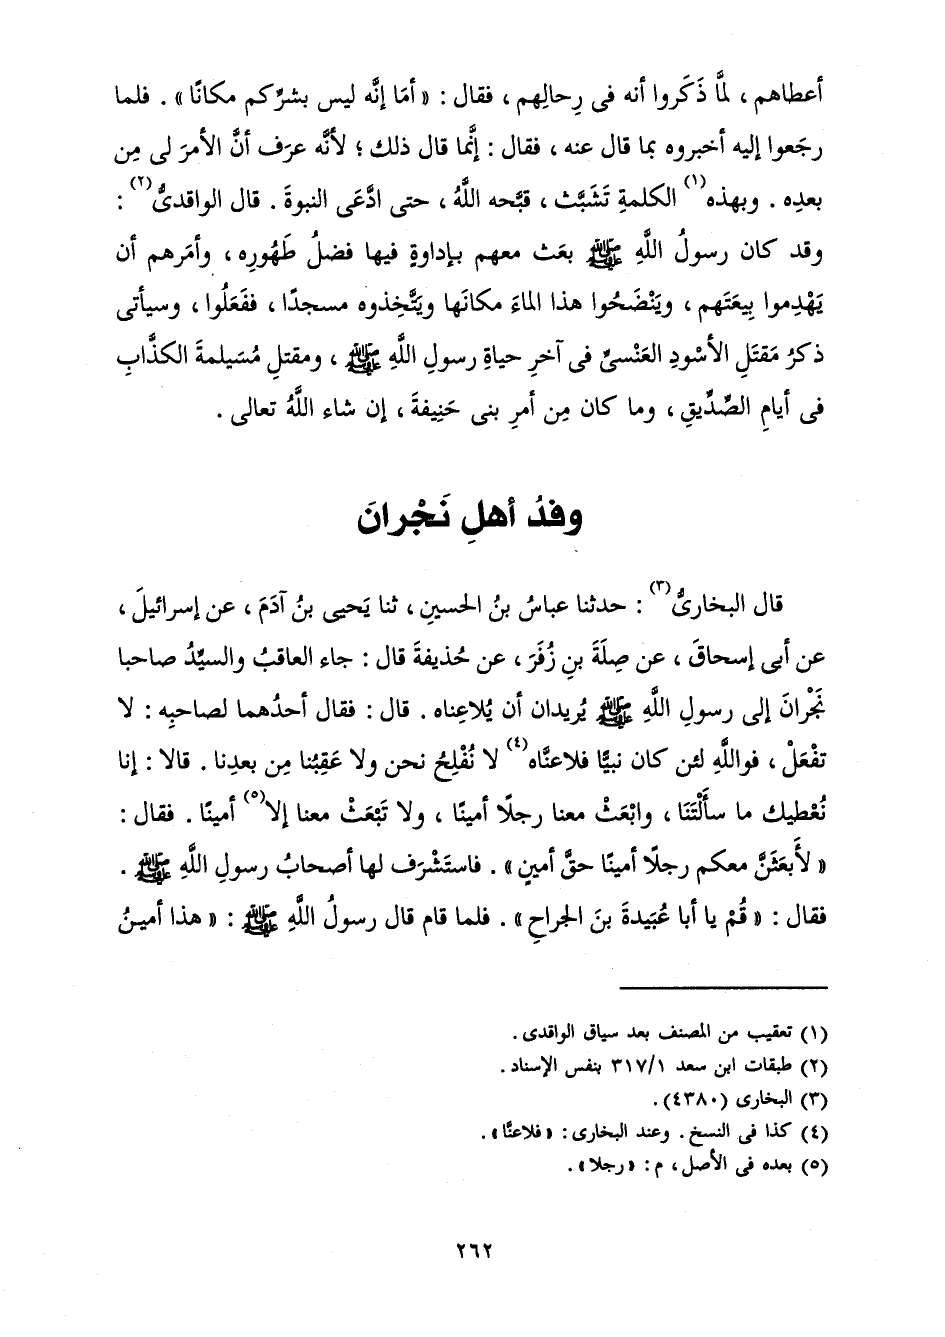 أعطاهم ، لمَّا ذَكَروا أنه فى رِحالِهم ، فقال : « أمَا إنَّه ليس بشرِّكم مكانًا » . فلما
رجَعوا إليه أخبروه بما قال عنه ، فقال : إنَّما قال ذلك ؛ لأنَّه عرَف أنَّ الأمرَ لى مِن
بعدِه . وبهذه(١) الكلمةِ تَشَبَّث ، قبَّحه اللَّهُ ، حتى ادَّعَى النبوةَ . قال الواقدىُّ(٢) :
وقد كان رسولُ اللَّهِ ﷺ بعَث معهم بإداوةٍ فيها فضلُ طَهُورِه ، وأمَرهم أن
يَهْدِموا بِيعَتَهم ، ويَنْضَحُوا هذا الماءَ مكانَها ويَتَّخِذوه مسجدًا ، ففَعَلُوا ، وسيأتى
ذكرُ مَقتَلِ الأسْودِ العَنْسىِّ فى آخرِ حياةِ رسولِ اللَّهِ ﷺ ، ومقتلِ مُسَيلمةَ الكذَّابِ
فى أيامِ الصِّدِّيقِ ، وما كان مِن أمرِ بنى حَنِيفةَ ، إن شاء اللَّهُ تعالى .
وفدُ أهلِ نَجْرانَ
قال البخارىُّ(٣) : حدثنا عباسُ بنُ الحسينِ ، ثنا يَحيى بنُ آدَمَ ، عن إسرائيلَ ،
عن أبى إسحاقَ ، عن صِلَةَ بنِ زُفَرَ ، عن حُذيفةَ قال : جاء العاقبُ والسيِّدُ صاحبا
نَجْرانَ إلى رسولِ اللَّهِ ﷺ يُريدان أن يُلاعِناه . قال : فقال أحدُهما لصاحبِه : لا
تفْعَلْ ، فواللَّهِ لئن كان نبيًّا فلاعنَّاه(٤) لا نُفْلِحُ نحن ولا عَقِبُنا مِن بعدِنا . قالا : إنا
نُعْطيك ما سأَلْتَنَا ، وابْعَثْ معنا رجلًا أمينًا ، ولا تَبْعَثْ معنا إلا(٥) أمينًا . فقال :
« لأَبعَثَنَّ معكم رجلًا أمينًا حقَّ أمينٍ » . فاستَشْرَف لها أصحابُ رسولِ اللَّهِ ﷺ .
فقال : « قُمْ يا أبا عُبَيدةَ بنَ الجراحِ » . فلما قام قال رسولُ اللَّهِ ﷺ : « هذا أمينُ
(١) تعقيب من المصنف بعد سياق الواقدى .
(٢) طبقات ابن سعد ٣١٧/١ بنفس الإسناد .
(٣) البخارى (٤٣٨٠) .
(٤) كذا فى النسخ . وعند البخارى : « فلاعنَّا » .
(٥) بعده فى الأصل ، م : « رجلا » .
٢٦٢